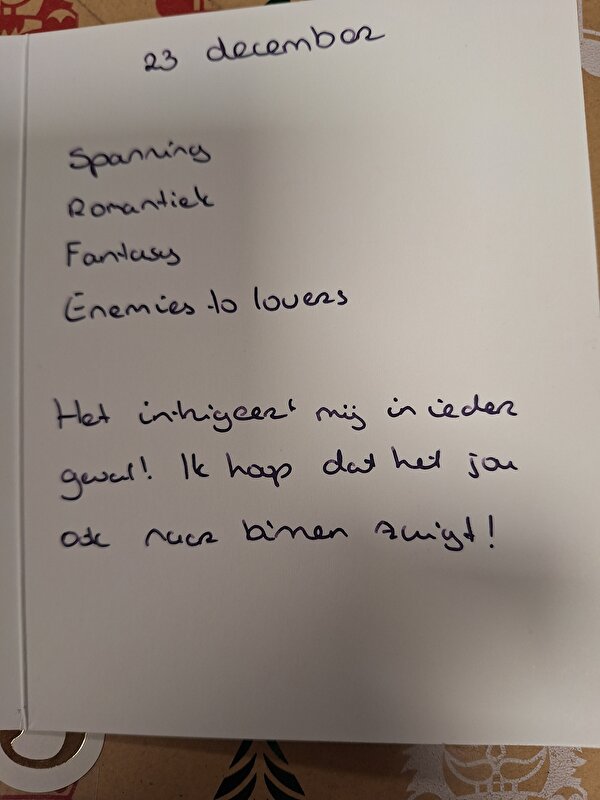 23 december
Spanning
Romantiek
Fantasy
Enemies to lovers
Het intrigeert mij in ieder
geval! Ik hoop dat het jou
ook naar binnen zuigt!